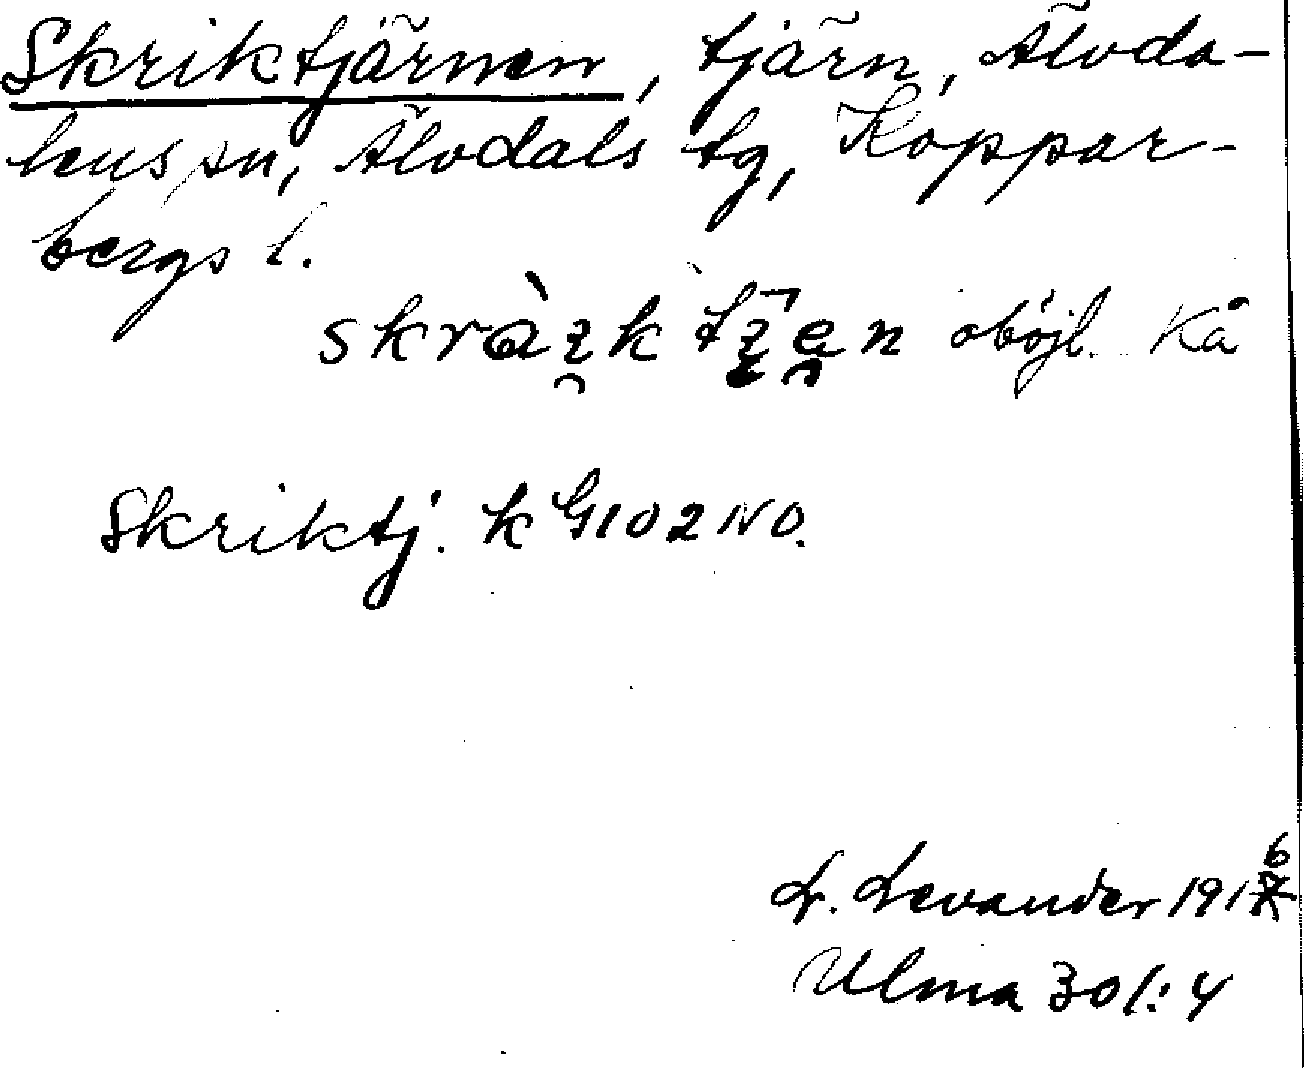 Skriktjärnen, tjärn, Älvda-
lens sn, Älvdals tg, Koppar-
bergs l.
oböjl. Kå
Skriktj. k G102NO.
L. Levander 1916
Ulma 301:4